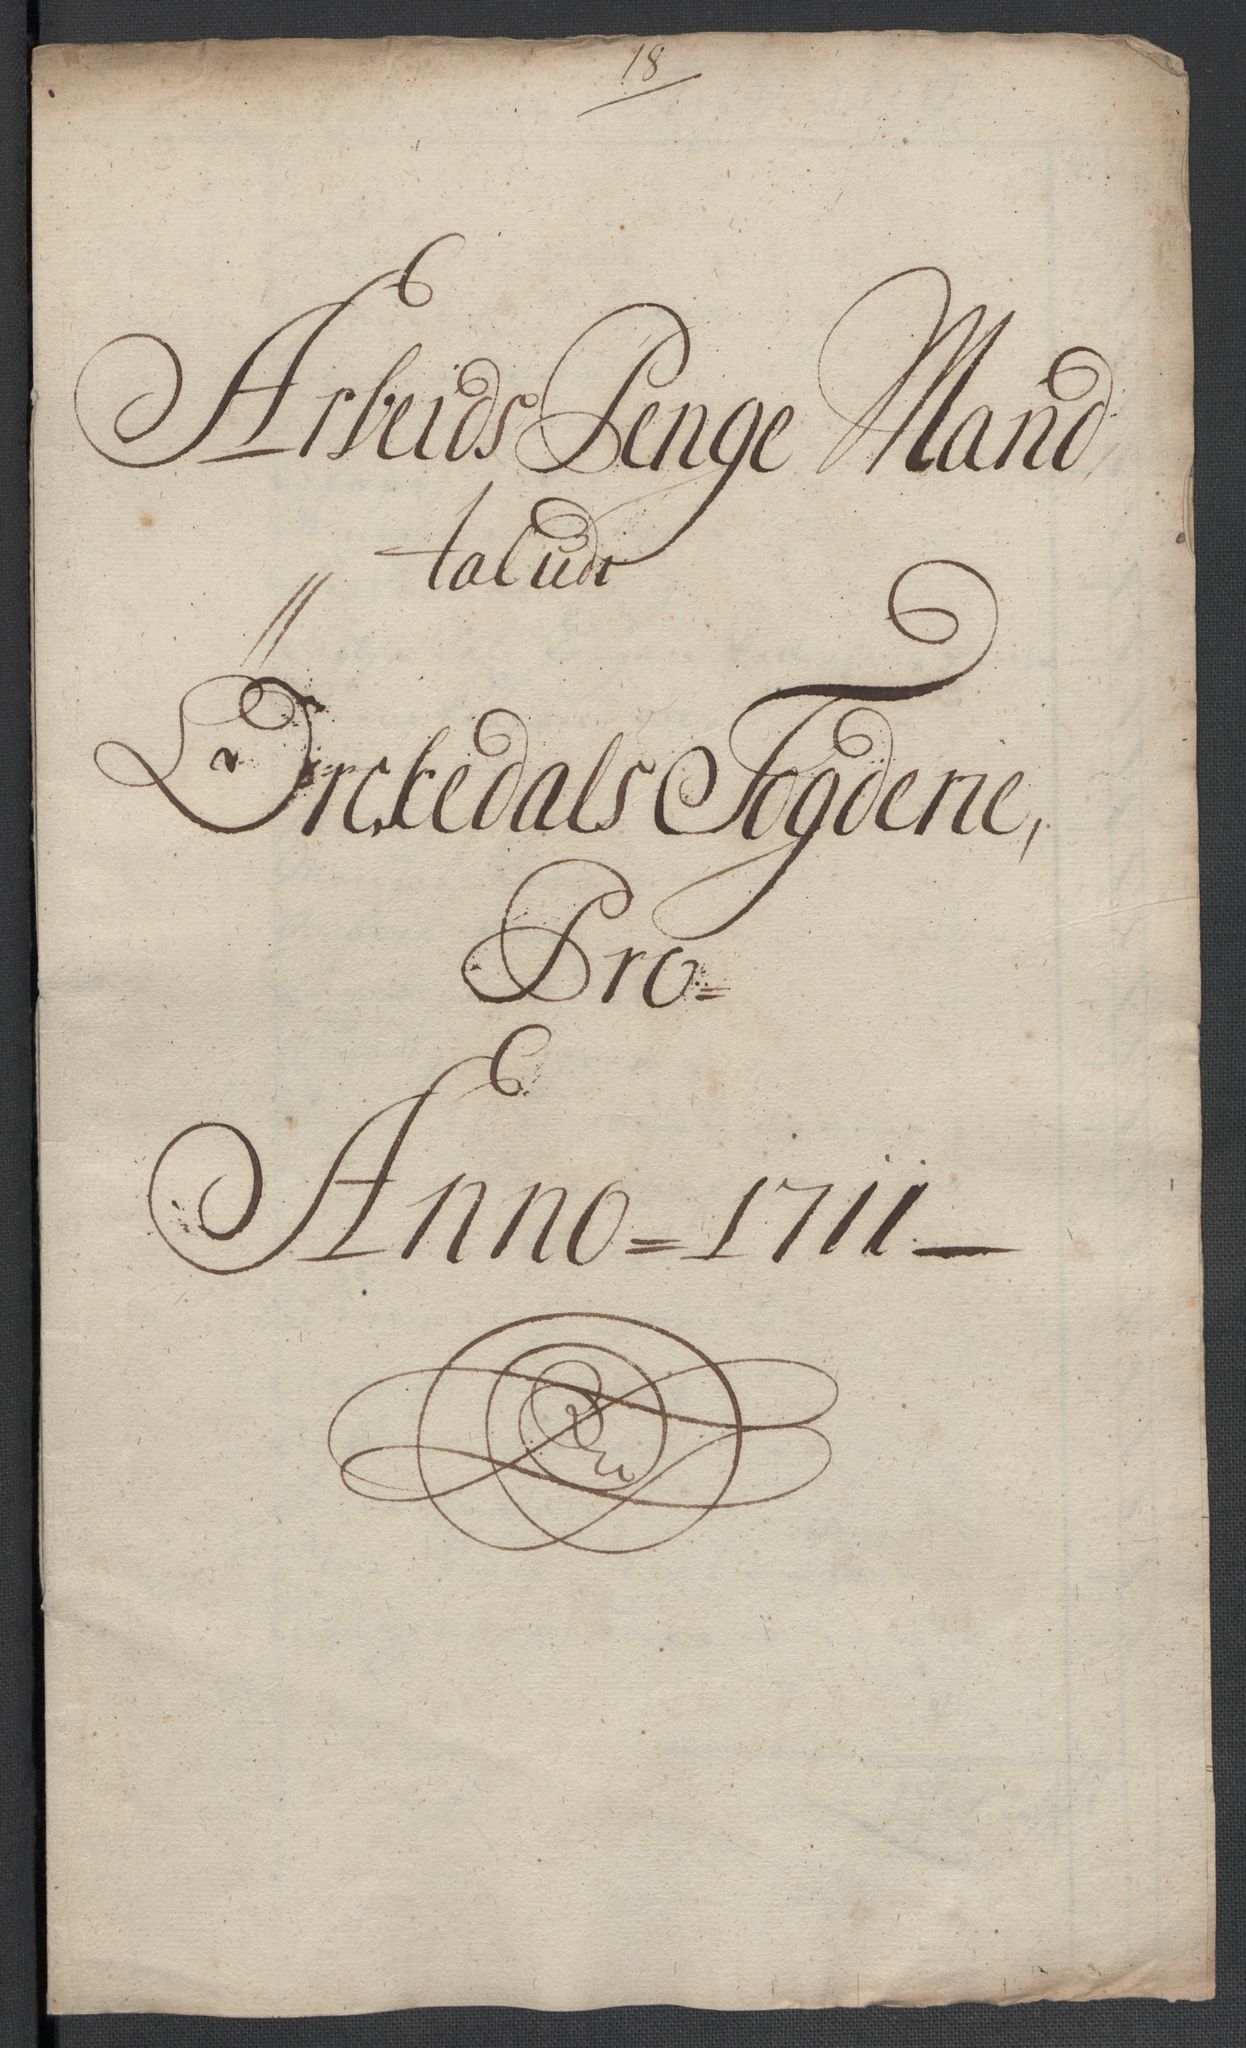 18
Arbeids Penge Mand,
tal udi
Örckedals Fogderie,
Pro=
Anno = 1711